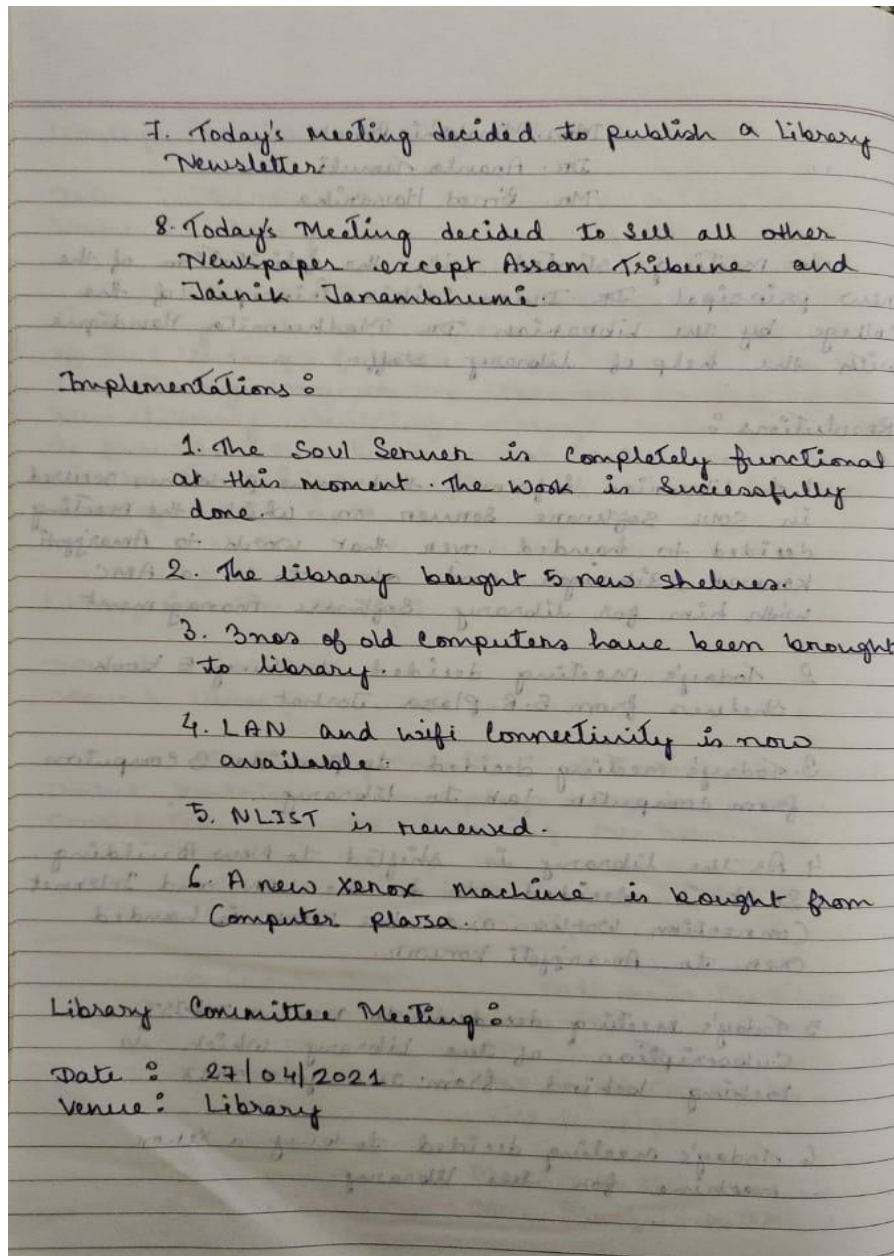 7. Today's Meeting decided to publish a Library
Newsletter.
8. Today's Meeting decided to sell all other
Newspaper except Assam Tribune and
Jainik Janambhumi.
Implementations :
1. The Soul Server is completely functional
at this moment. The work is Successfully
done.
2. The library bought 5 new shelves.
3. 3nos of old computers have been brought
to library.
4. LAN and wifi connectivity is now
available.
5. NLIST is renewed.
6. A new Xenox machine is bought from
Computer plaza.
Library Committee Meeting :
Date : 27/04/2021
Venue : Library